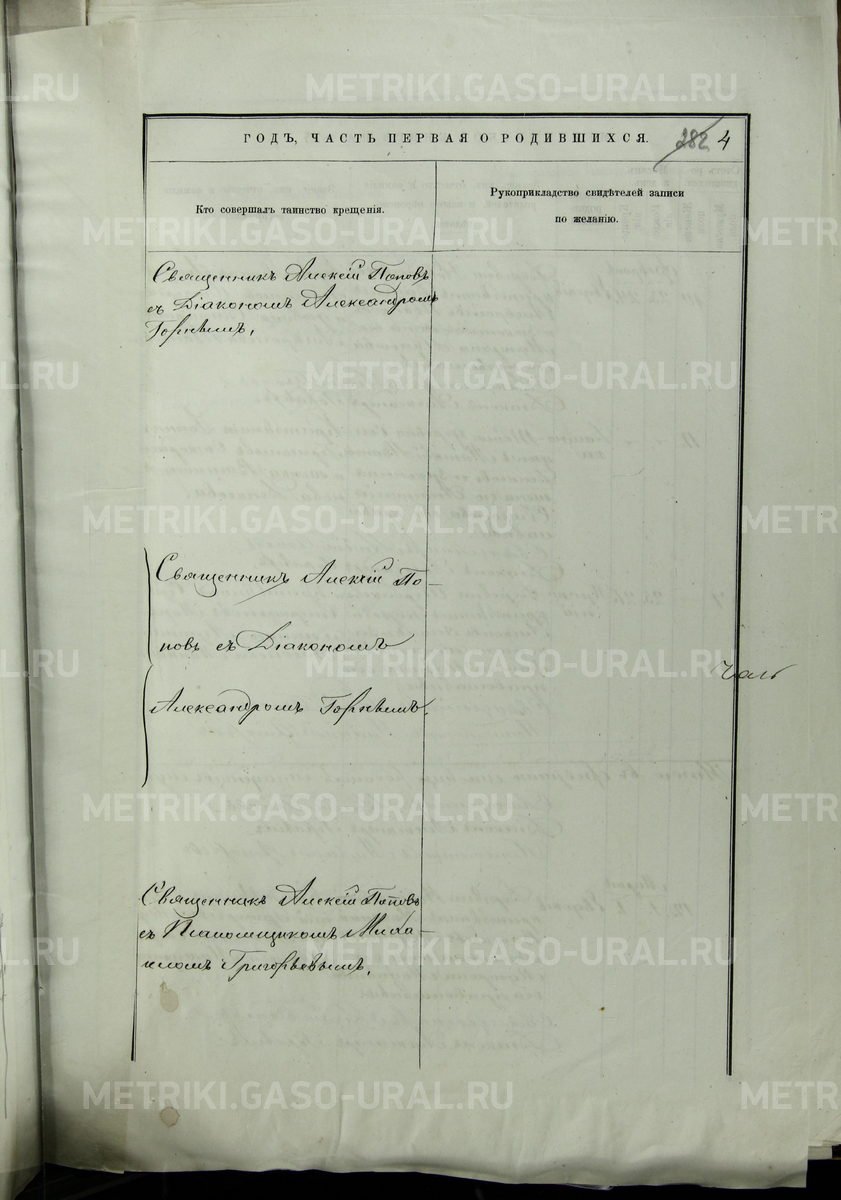 ГОДЪ, ЧАСТЬ ПЕРВАЯ О РОДИВШИХСЯ.
282 4
Кто совершалъ таинство крещенія.
Рукоприкладство свидѣтелей записи
по желанію.
Священникъ Алексій Поповъ
съ Діакономъ Александромъ
Горнымъ,
Священникъ Алексій По-
повъ съ Діакономъ
Александромъ Горнымъ,
Священникъ Алексій Поповъ
съ Псаломщикомъ Миха-
иломъ Григорьевымъ,
METRIKI.GASO-URAL.RU